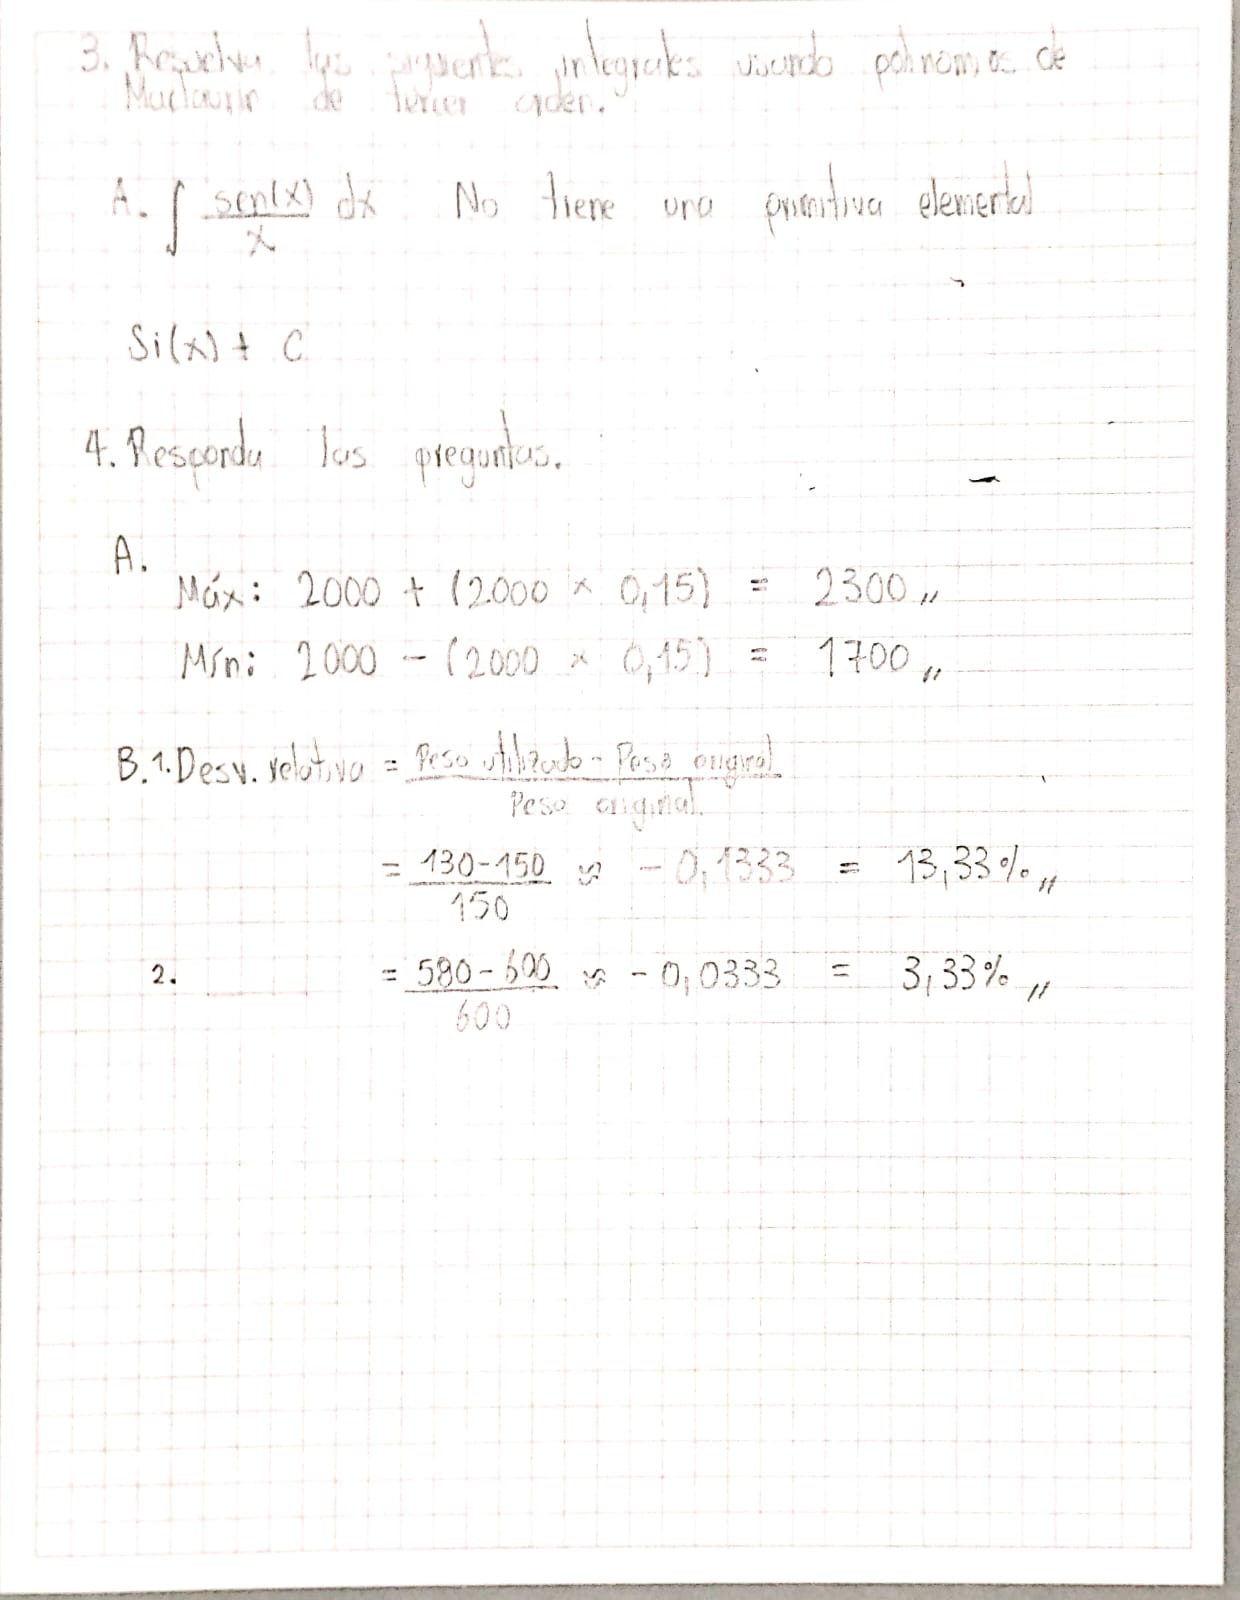 3. Resuelva las siguientes integrales usando polinomios de
Maclaurin de tercer orden.
A. ∫ sen(x)/x dx No tiene una primitiva elemental
Si(x) + C
4. Responda las preguntas.
A.
Máx: 2000 + (2000 × 0,15) = 2300 ,,
Mín: 2000 - (2000 × 0,15) = 1700 ,,
B. 1. Desv. relativa = Peso utilizado - Peso original / Peso original.
= 130-150 / 150 ≈ - 0,1333 = 13,33% ,,
2. = 580-600 / 600 ≈ - 0,0333 = 3,33% ,,